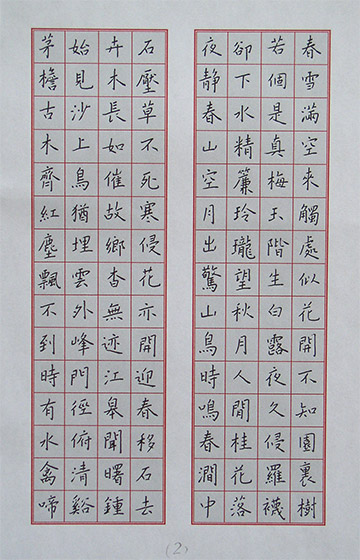 春雪滿空来觸處似花開不知園裏樹
若個是真梅玉階生白露夜久侵羅襪
卻下水精簾玲瓏望秋月人閒桂花落
夜静春山空月出驚山鳥時鳴春澗中
石壓草不死寒侵花亦開迎春移石去
卉木長如催故鄉杳無迹江皋聞曙鍾
始見沙上鳥猶埋雲外峰門徑俯清谿
茅檐古木齊紅塵飄不到時有水禽啼
(2)